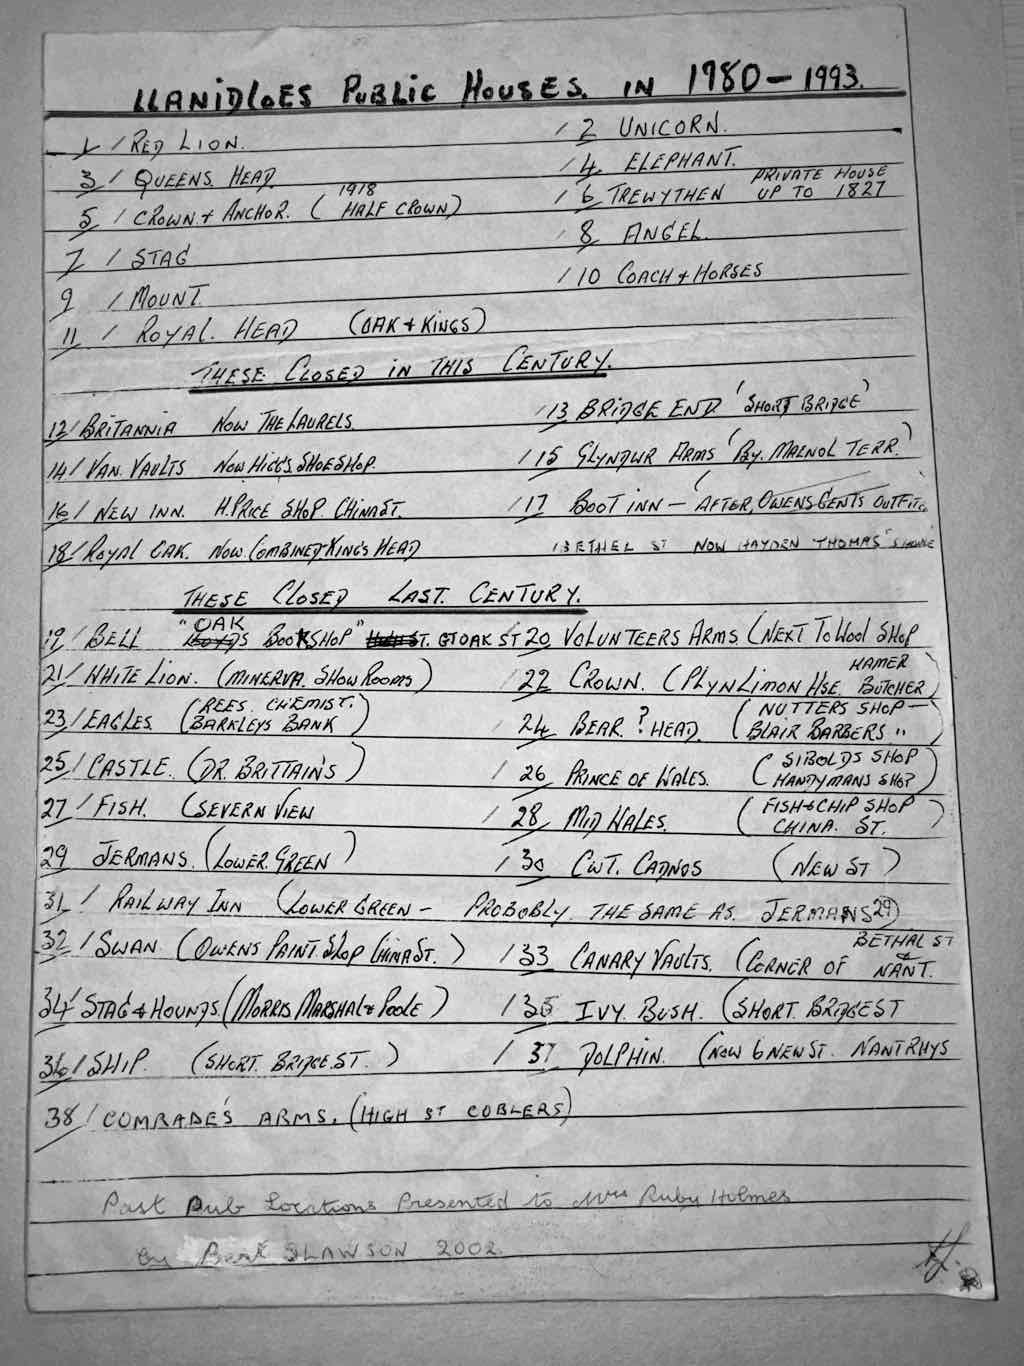 LLANIDLOES PUBLIC HOUSES. IN 1980 - 1993.
1/ RED LION. / 2 UNICORN.
3/ QUEENS HEAD. / 4. ELEPHANT.
5/ CROWN & ANCHOR. (1918 HALF CROWN) / 6 TREWYTHEN PRIVATE HOUSE UP TO 1827
7/ STAG / 8 ANGEL.
9 / MOUNT. / 10 COACH & HORSES
11 / ROYAL. HEAD (OAK & KINGS)
THESE CLOSED IN THIS CENTURY.
12/ BRITANNIA NOW THE LAURELS. / 13 BRIDGE END 'SHORT BRIDGE'
14/ VAN. VAULTS NOW HIGG'S SHOE SHOP. / 15 GLYNDWR ARMS (BY. MALNOL TERR.)
16/ NEW INN. H. PRICE SHOP. CHINA ST. / 17 BOOT INN - (AFTER, OWENS GENTS OUTFITS
18/ ROYAL OAK. NOW COMBINED KING'S HEAD BETHEL ST NOW HAYDEN THOMAS'S HOUSE
THESE CLOSED LAST. CENTURY.
19/ BELL "OAK BOOKSHOP" GT OAK ST 20 VOLUNTEERS ARMS (NEXT TO WOOL SHOP
21/ WHITE LION. (MINERVA. SHOW ROOMS) / 22 CROWN. (PLYNLIMON HSE. HAMER BUTCHER)
23/ EAGLES. (REES. CHEMIST. BARKLEYS BANK) 24 BEAR ? HEAD. (NUTTERS SHOP - BLAIR BARBERS ")
25/ CASTLE. (DR. BRITTAIN'S) / 26 PRINCE OF WALES. (SIBOLDS SHOP HANDYMANS SHOP)
27/ FISH. (SEVERN VIEW / 28 MID WALES. (FISH & CHIP SHOP CHINA. ST.)
29 JERMANS. (LOWER GREEN) / 30 CWT. CADNOS (NEW ST)
31/ RAILWAY INN (LOWER GREEN - PROBOBLY THE SAME AS. JERMANS 29)
32/ SWAN. (OWENS PAINT. SHOP CHINA ST.) / 33 CANARY VAULTS. (CORNER OF BETHAL ST & NANT.
34/ STAG & HOUNDS. (MORRIS MARSHAL & POOLE) / 35 IVY. BUSH. (SHORT. BRIDGE ST
36/ SHIP. (SHORT. BRIDGE. ST.) / 37 DOLPHIN. (NOW 6 NEW ST. NANTRHYS
38/ COMRADE'S ARMS. (HIGH ST COBLERS)
Past Pub Locations Presented to Mrs Ruby Holmes
by Bert SLAWSON 2002.